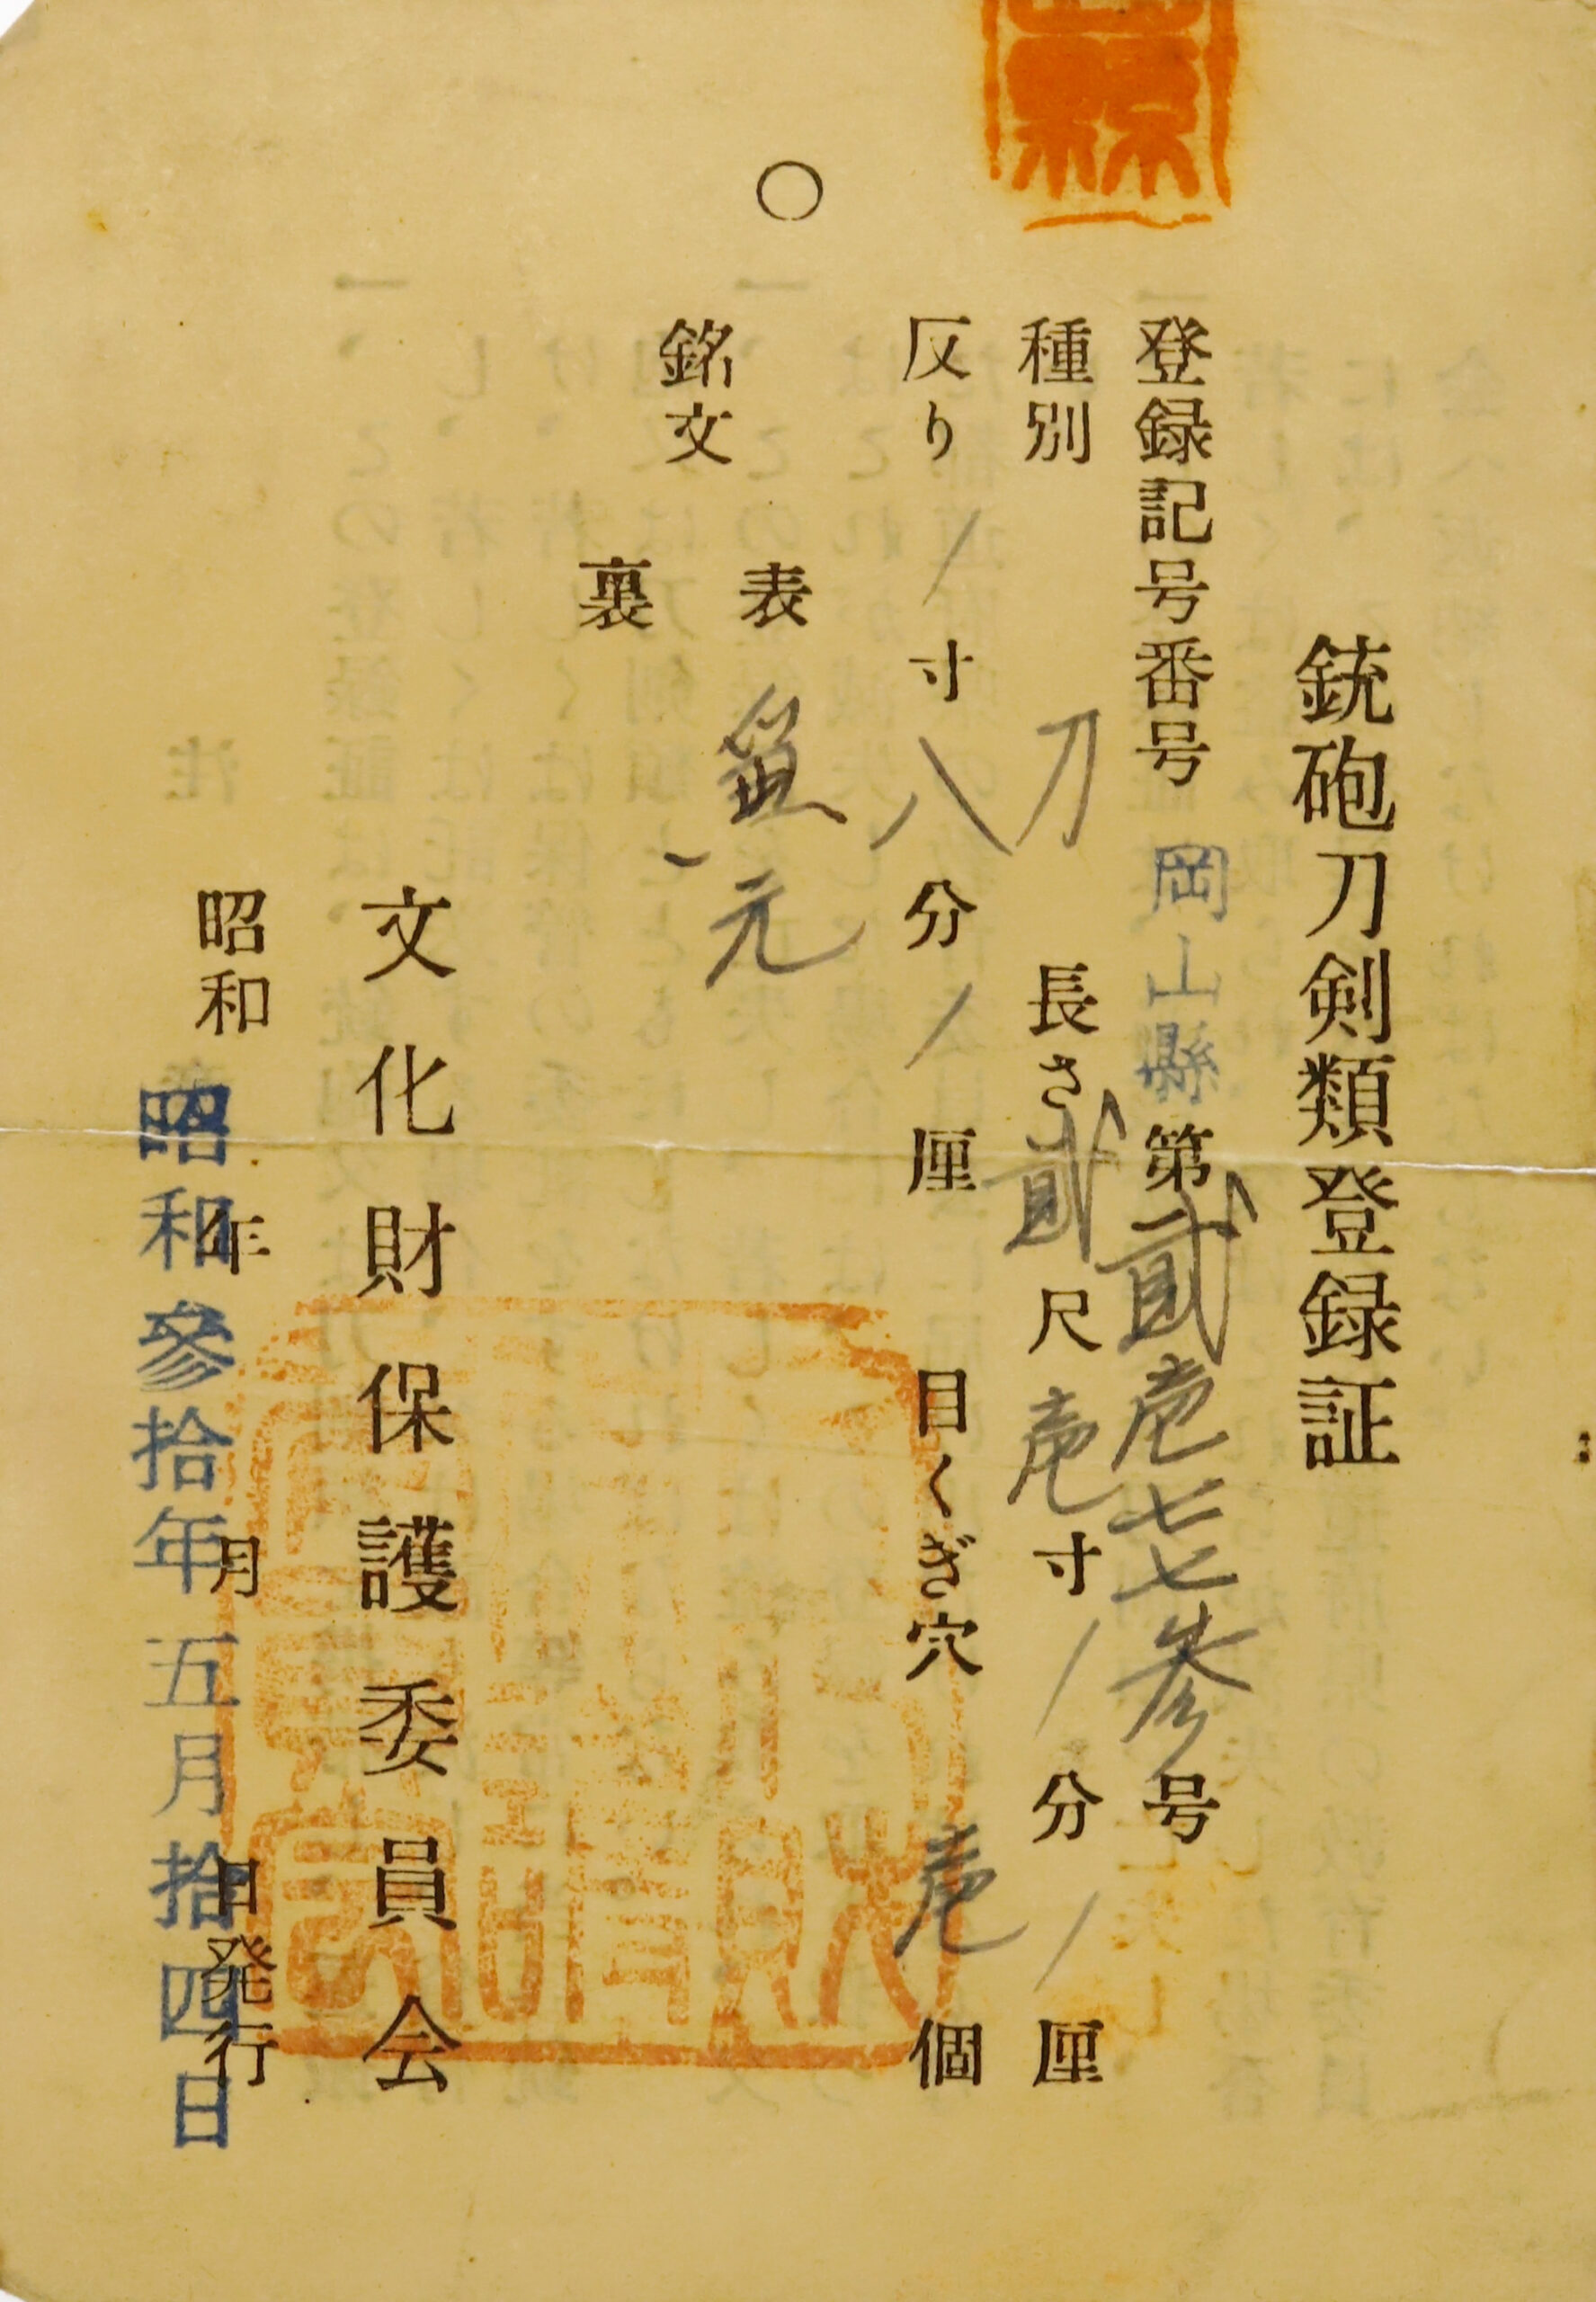 銃砲刀剣類登録証
登録記号番号 岡山縣 第貳壱七七参号
種別 刀 長さ 貳尺壱寸/分/厘
反り / 寸八分/厘 目くぎ穴 壱個
銘文
表 元
裏
文化財保護委員会
昭和 年 月 日発行
昭和参拾年五月拾四日